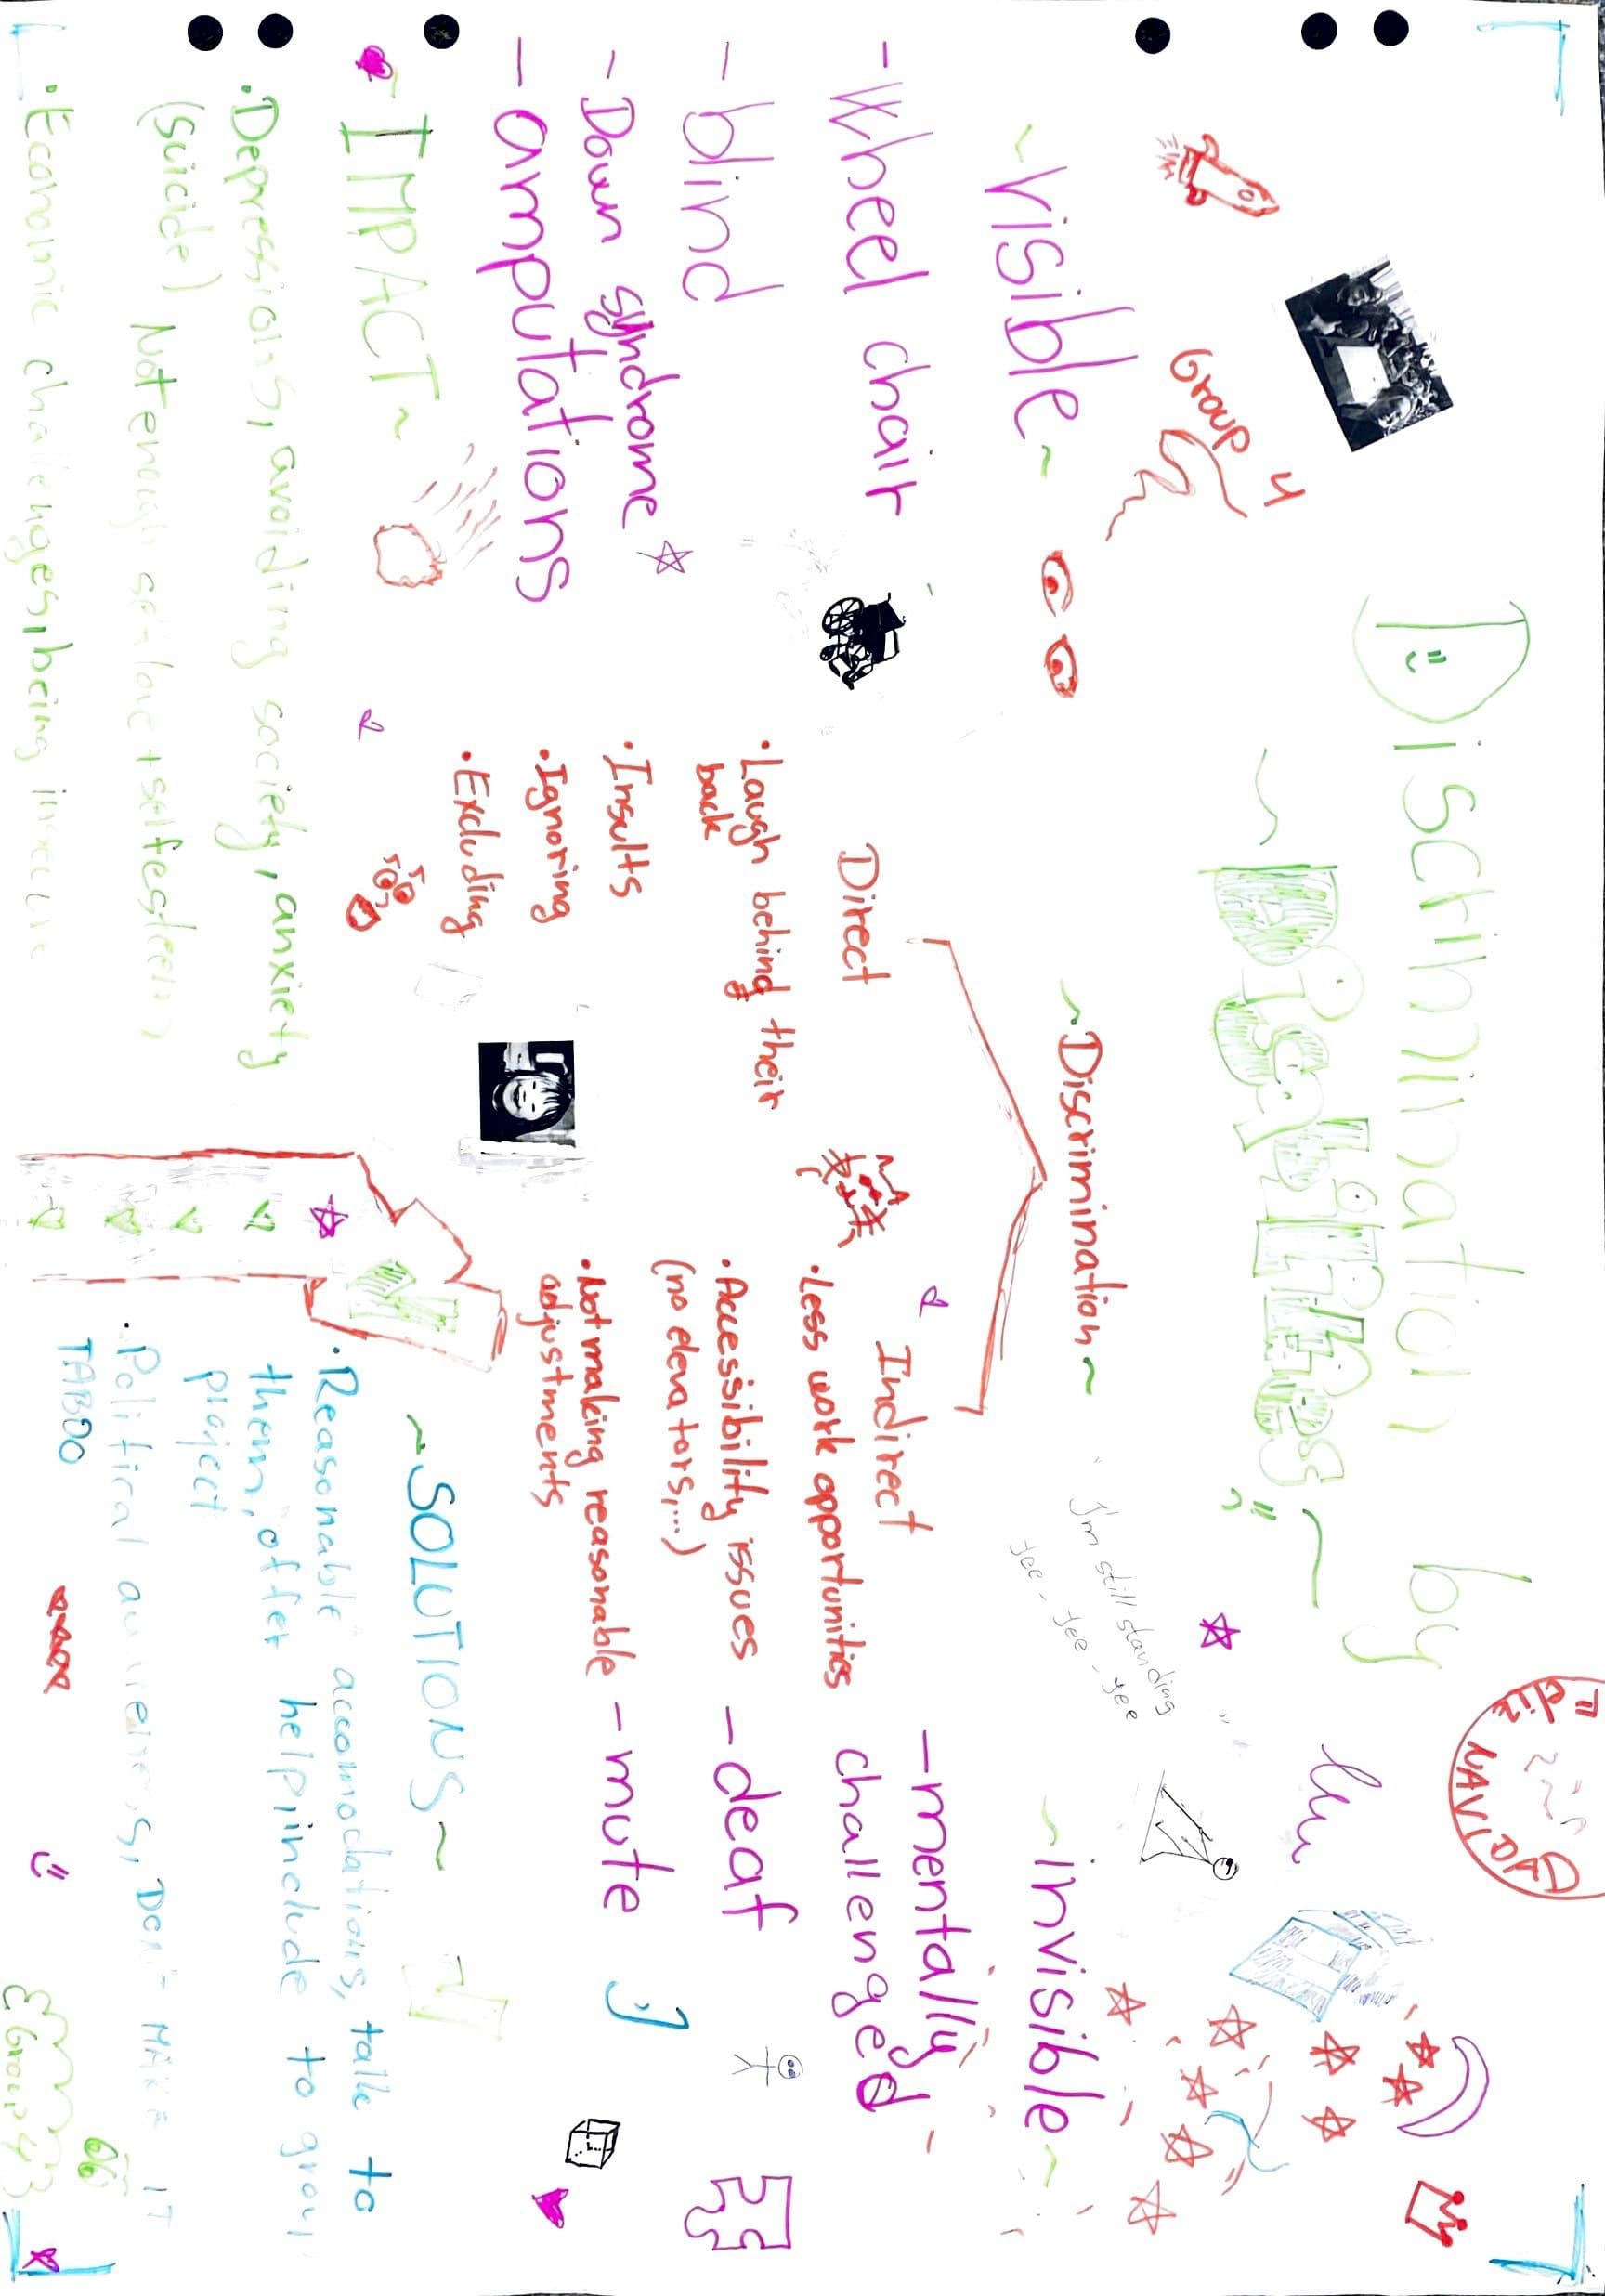 Discrimination by
~ Disabilities ~
Group 4
~ Visible ~
- Wheel chair
- blind
- Down syndrome
- amputations
~ Discrimination ~
Direct
• Laugh behind their
back
• Insults
• Ignoring
• Excluding
Indirect
• Less work opportunities
• Accessibility issues
(no elevators,...)
• Not making reasonable
adjustments
" I'm still standing
yee - yee - yee "
~ invisible ~
- mentally
challenged
- deaf
- mute
~ IMPACT ~
• Depressions, avoiding society, anxiety
(suicide) Not enough self love + selfesteem
• Economic challenges, being
~ SOLUTIONS ~
• "Reasonable" accomodations, talk to
them, offer help, include to group
project
• Political awareness, DON'T MAKE IT
TABOO
Group 4